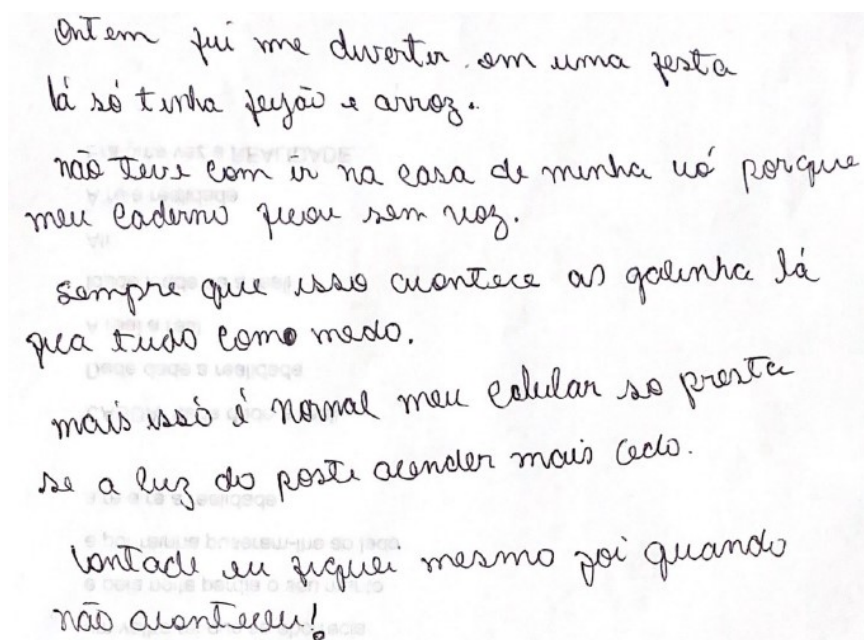 Ontem fui me divertir em uma festa
lá só tinha feijão e arroz.
não teve com ir na casa de minha vó porque
meu caderno ficou sem voz.
sempre que isso acontece as galinha lá
fica tudo como medo.
mais issó é normal meu celular so presta
se a luz do poste acender mais cedo.
Vontade eu fiquei mesmo foi quando
não aconteceu!